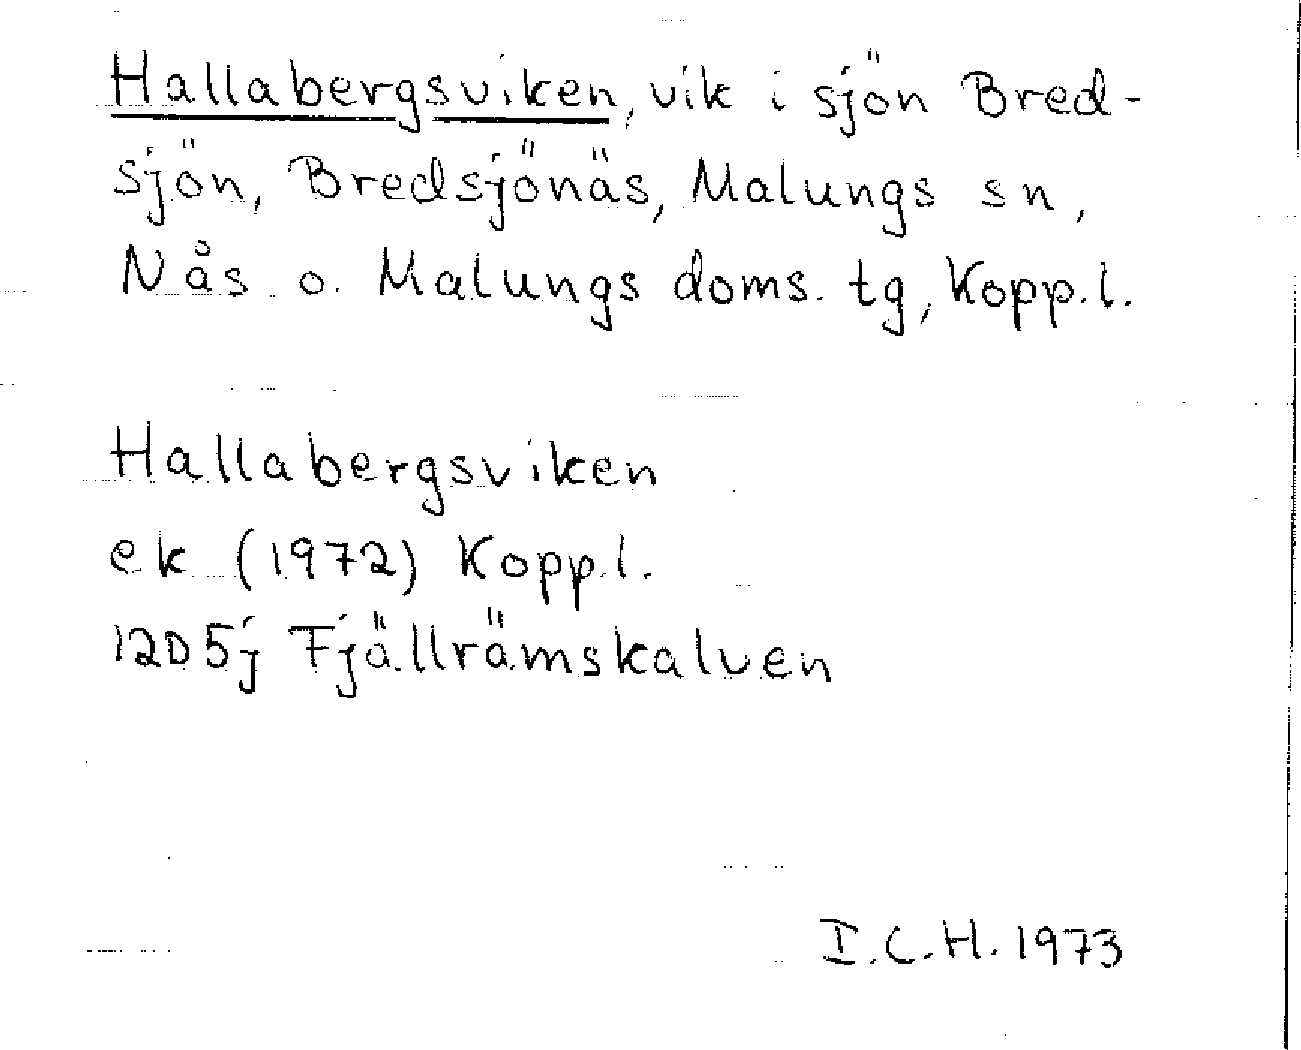 Hallabergsviken, vik i sjön Bred-
sjön, Bredsjönäs, Malungs sn,
Nås o. Malungs doms. tg, Kopp.l.
Hallabergsviken
ek (1972) Kopp.l.
12D5j Fjällrämskalven
I.C.H. 1973